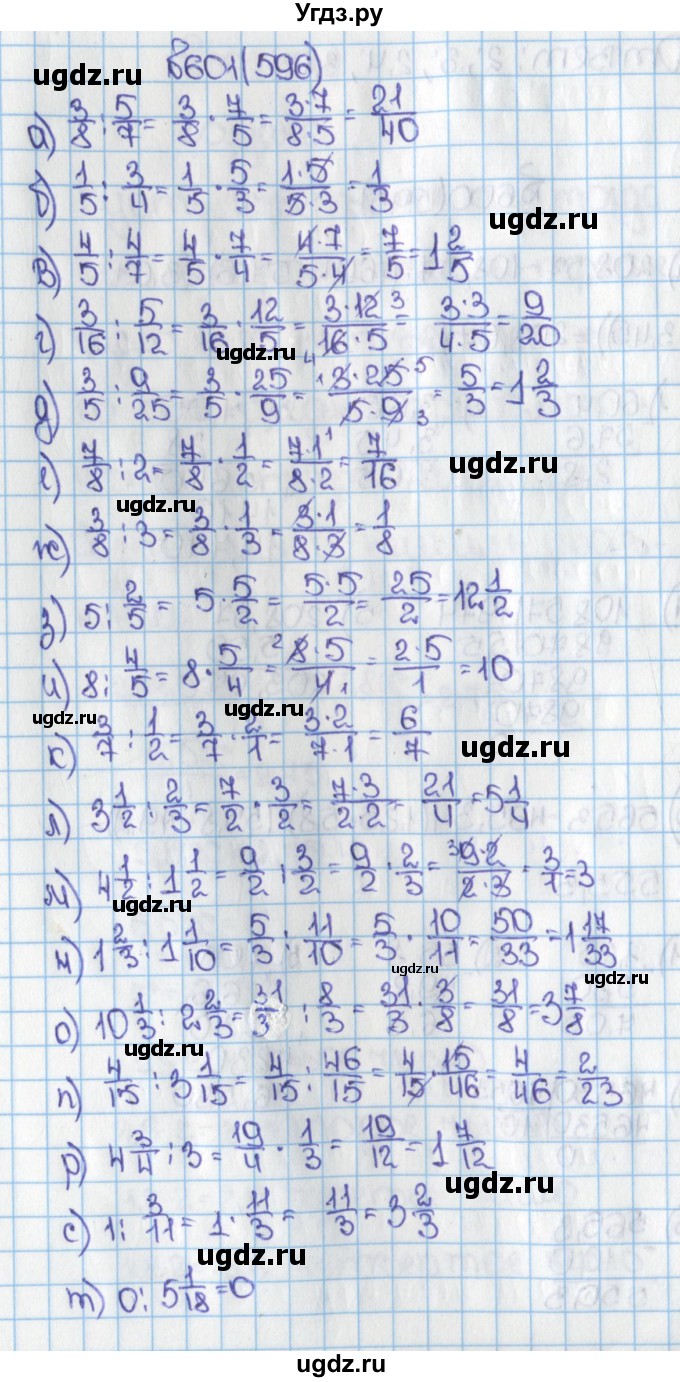 Угдз.ру
В601(596)
ugdz.ru
а) 3/8 : 5/7 = 3/8 · 7/5 = 3·7/8·5 = 21/40
б) 1/5 : 3/4 = 1/5 · 5/3 = 1·5/5·3 = 1/3
ugdz.ru
в) 4/5 : 4/7 = 4/5 · 7/4 = 4·7/5·4 = 7/5 = 1 2/5
г) 3/16 : 5/12 = 3/16 · 12/5 = 3·12 3/4 16·5 = 3·3/4·5 = 9/20
д) 3/5 : 9/25 = 3/5 · 25/9 = 1 3·25 5/5·9 3 = 5/3 = 1 2/3
е) 7/8 : 2 = 7/8 · 1/2 = 7·1/8·2 = 7/16
ugdz.ru
ugdz.ru
ж) 3/8 : 3 = 3/8 · 1/3 = 3·1/8·3 = 1/8
з) 5 : 2/5 = 5 · 5/2 = 5·5/2 = 25/2 = 12 1/2
и) 8 : 4/5 = 8 · 5/4 = 2 8·5/4 1 = 2·5/1 = 10
ugdz.ru
ugdz.ru
к) 3/7 : 1/2 = 3/7 · 2/1 = 3·2/7·1 = 6/7
ugdz.ru
л) 3 1/2 : 2/3 = 7/2 · 3/2 = 7·3/2·2 = 21/4 = 5 1/4
ugdz.ru
м) 4 1/2 : 1 1/2 = 9/2 : 3/2 = 9/2 · 2/3 = 3 9·2/2·3 = 3/1 = 3
ugdz.ru
н) 1 2/3 : 1 1/10 = 5/3 : 11/10 = 5/3 · 10/11 = 50/33 = 1 17/33
ugdz.ru
ugdz.ru
о) 10 1/3 : 2 2/3 = 31/3 : 8/3 = 31/3 · 3/8 = 31/8 = 3 7/8
ugdz.ru
п) 4/15 : 3 1/15 = 4/15 : 46/15 = 4/15 · 15/46 = 4/46 = 2/23
р) 4 3/4 : 3 = 19/4 · 1/3 = 19/12 = 1 7/12
ugdz.ru
с) 1 : 3/11 = 1 · 11/3 = 11/3 = 3 2/3
ugdz.ru
т) 0 : 5 1/18 = 0
ugdz.ru